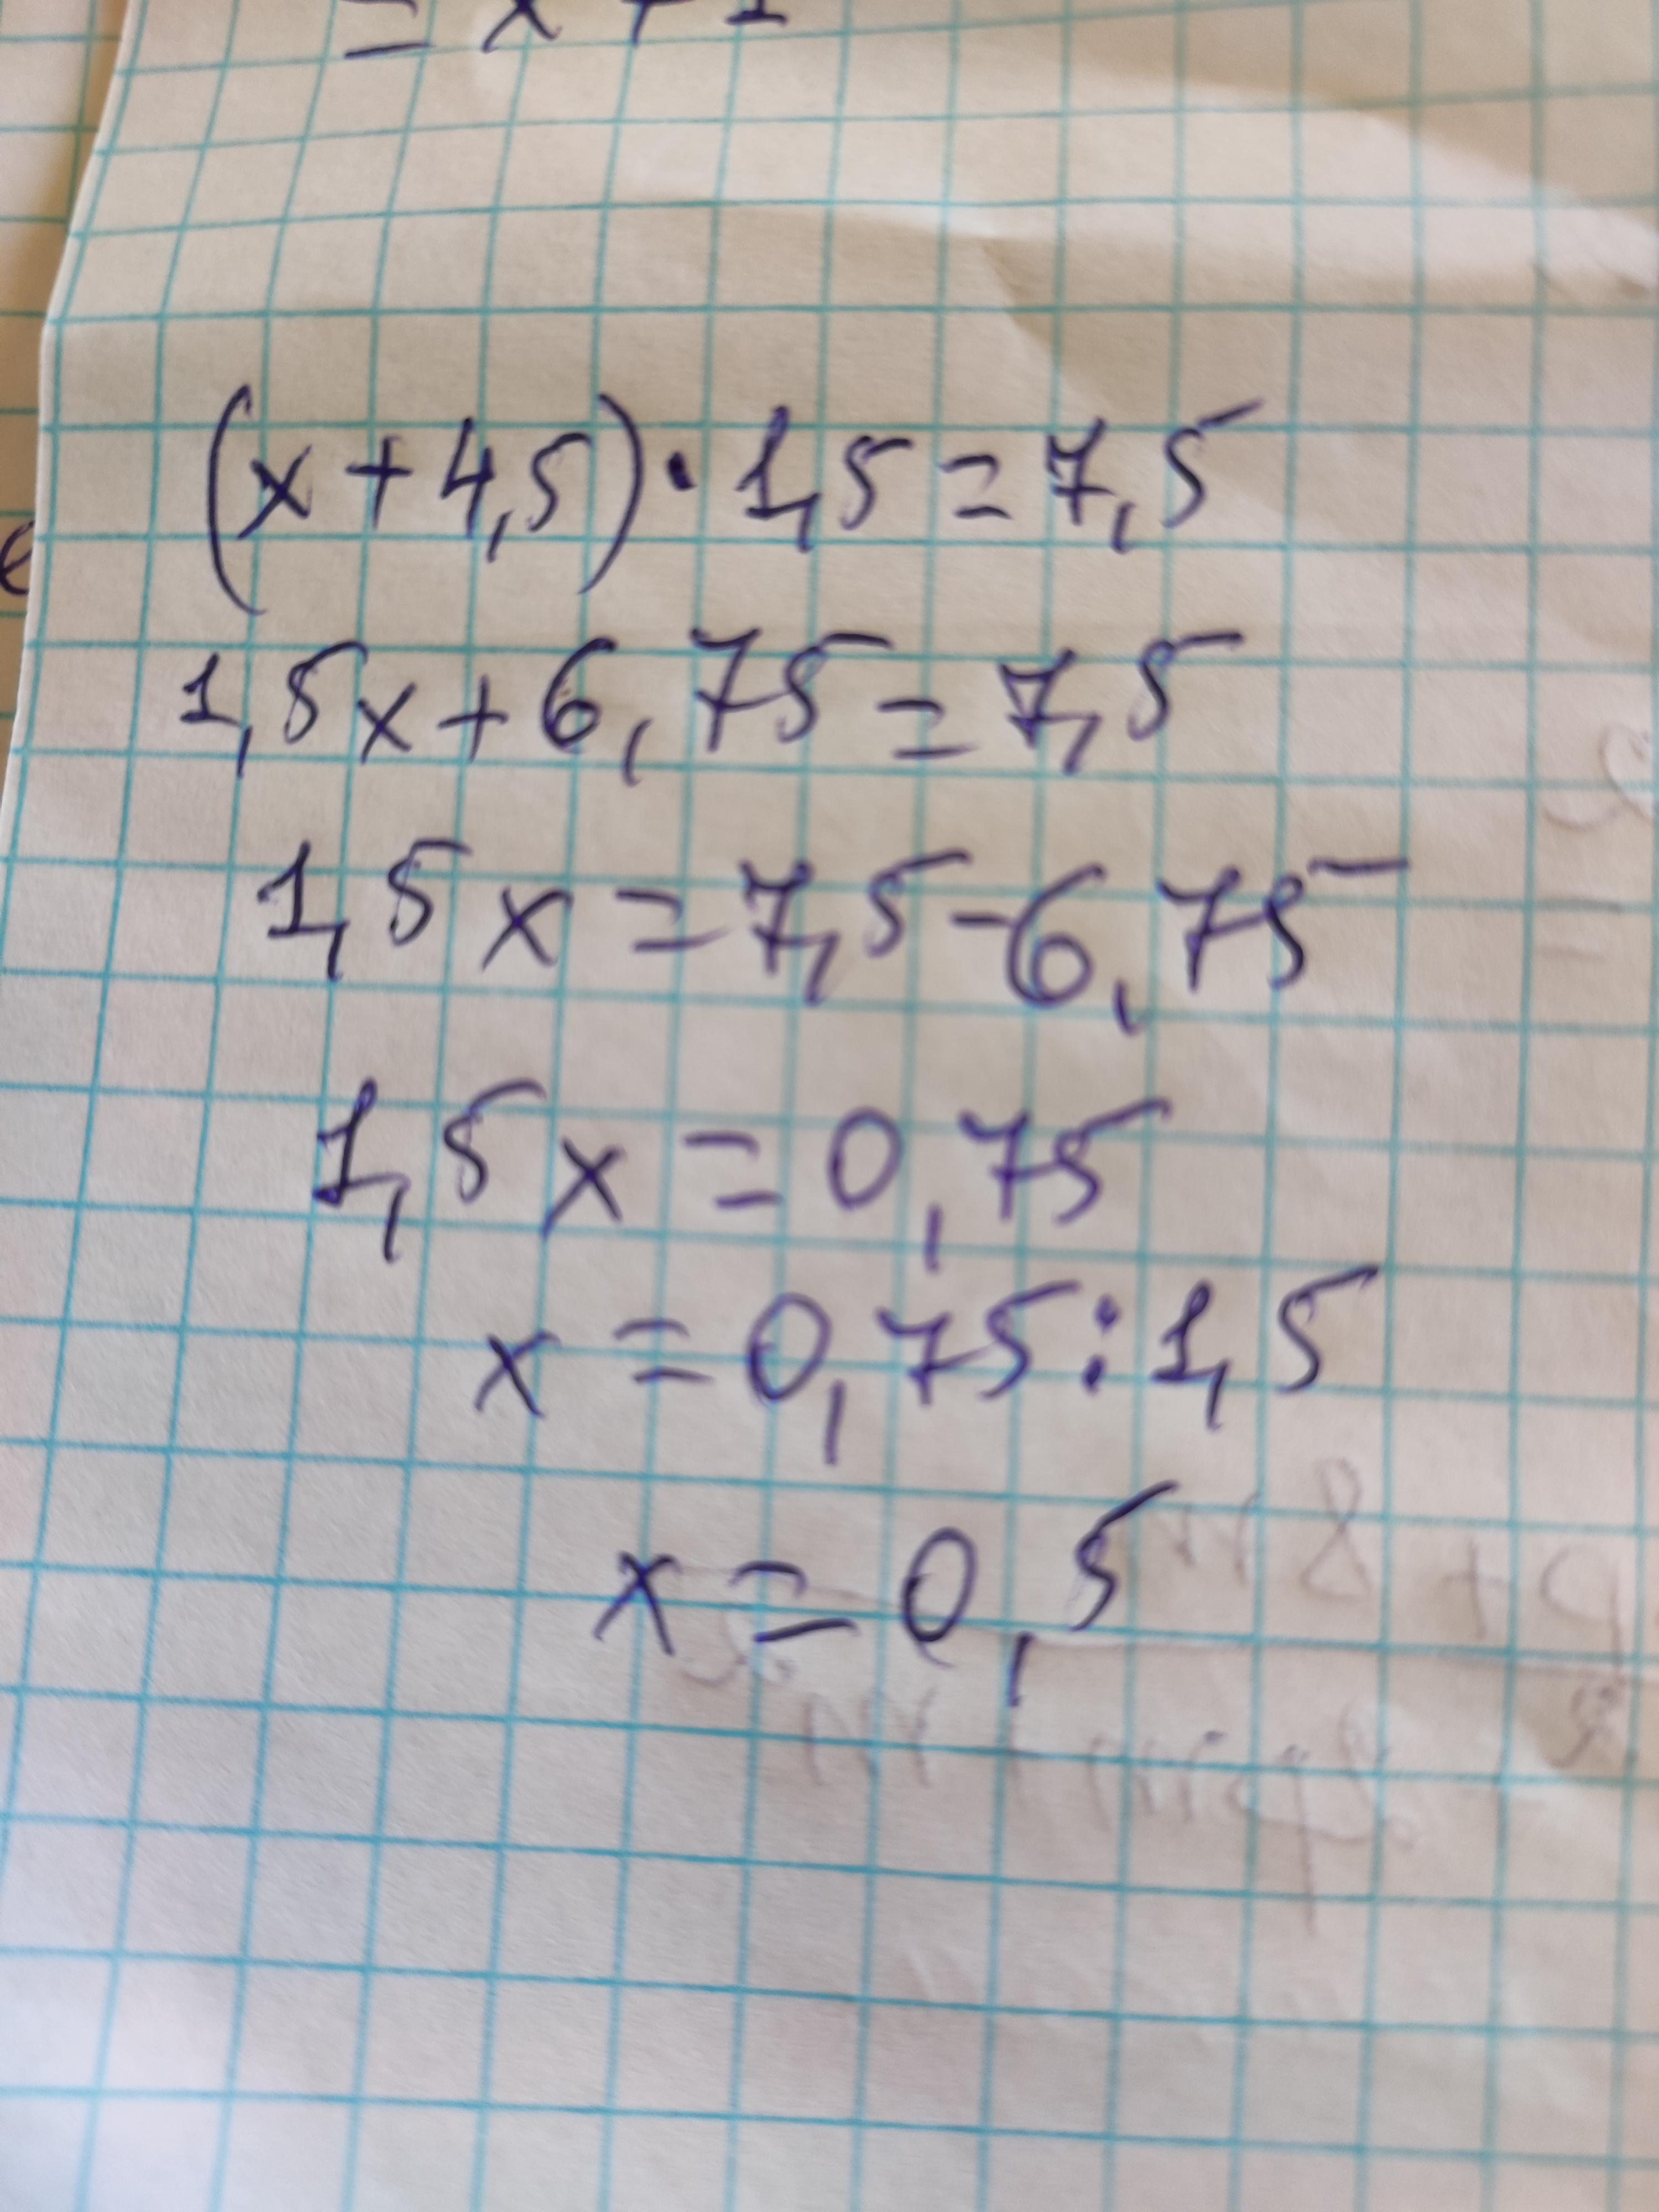 = x + 1
(x + 4,5) · 1,5 = 7,5
1,5x + 6,75 = 7,5
1,5x = 7,5 - 6,75
1,5x = 0,75
x = 0,75 : 1,5
x = 0,5